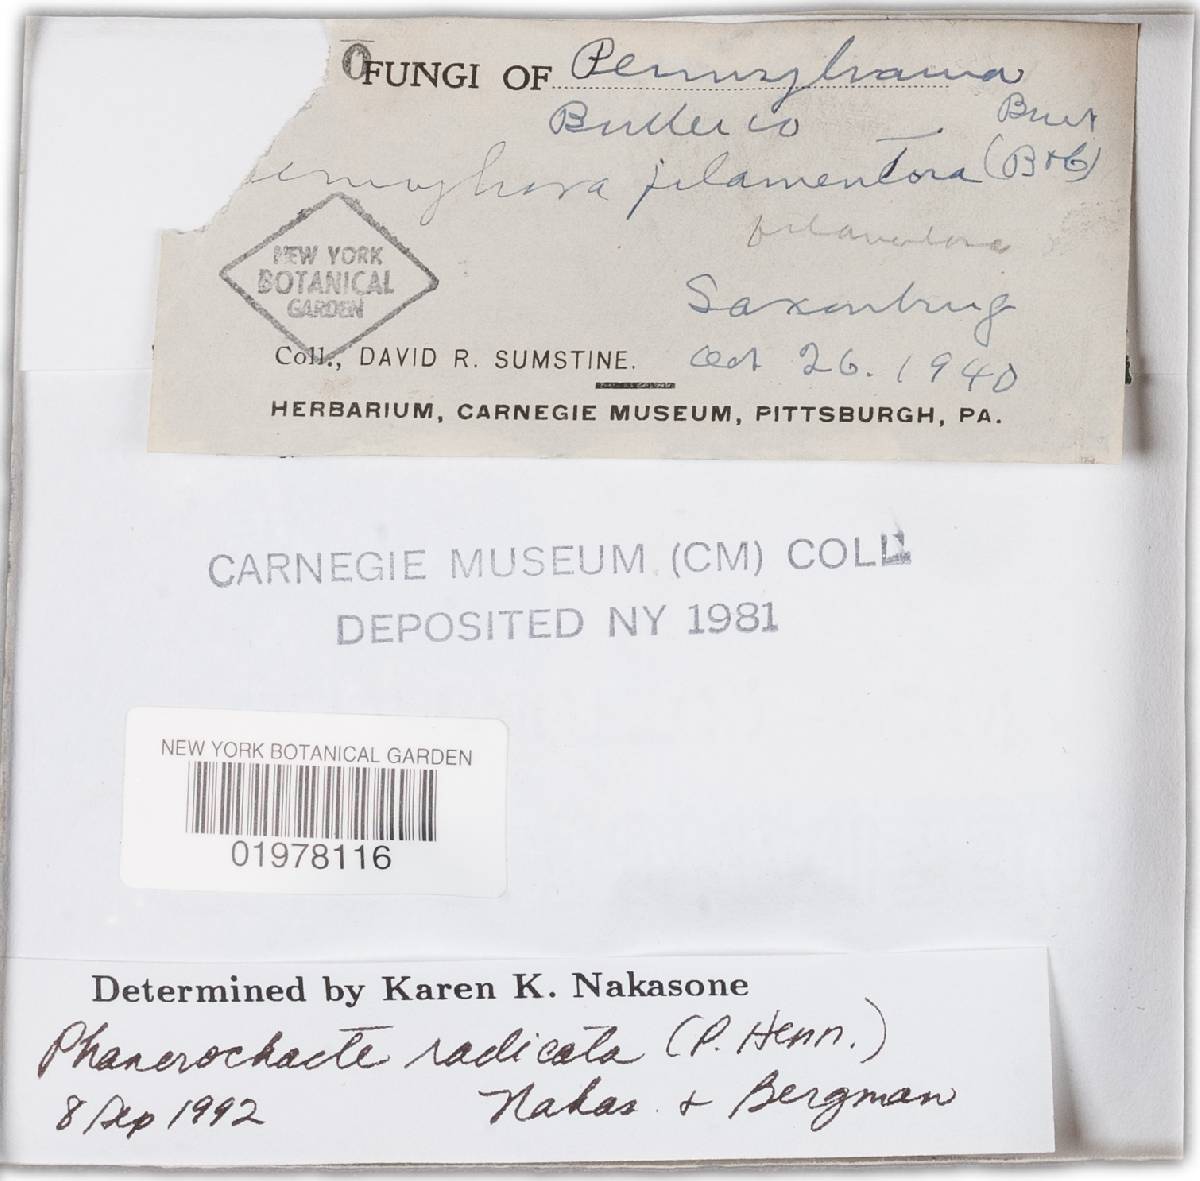 FUNGI OF Pennsylvania
Butler Co
Burt
filamentosa (B+C)
filamentosa
NEW YORK
BOTANICAL
GARDEN
Saxonburg
Coll., DAVID R. SUMSTINE. Oct 26. 1940
HERBARIUM, CARNEGIE MUSEUM, PITTSBURGH, PA.
CARNEGIE MUSEUM (CM) COLL
DEPOSITED NY 1981
NEW YORK BOTANICAL GARDEN
01978116
Determined by Karen K. Nakasone
Phanerochaete radicata (P. Henn.)
8 Sep 1992 Nakas. & Bergman